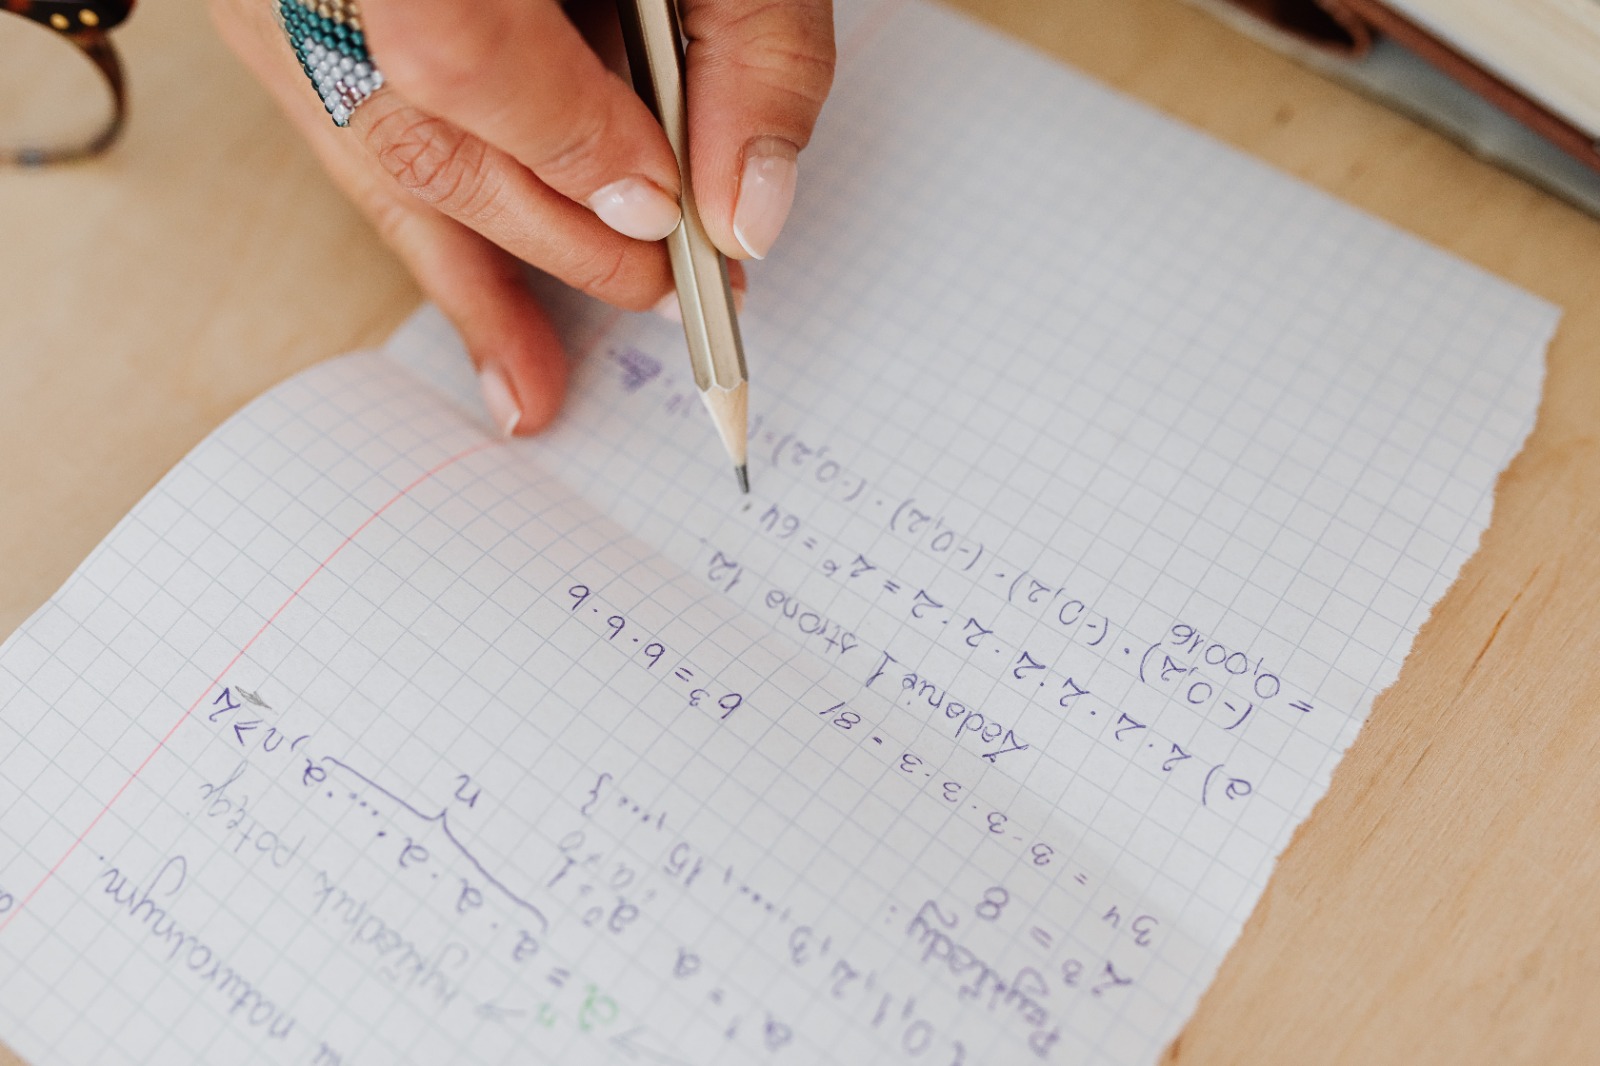 naturalnym.
wykładnik potęgi
aⁿ = a · a · a · ... · a, n ≥ 2
n
a¹ = a
a⁰ = 1
, a ≠ 0
{0, 1, 2, 3, ..., 15, ... }
Przykłady :
2³ = 8
b³ = b · b · b
3⁴ = 3 · 3 · 3 · 3 = 81
Zadanie 1 strona 12.
a) 2 · 2 · 2 · 2 · 2 · 2 = 2⁶ = 64
(-0,2) · (-0,2) · (-0,2) · (-0,2) = (
= 0,0016